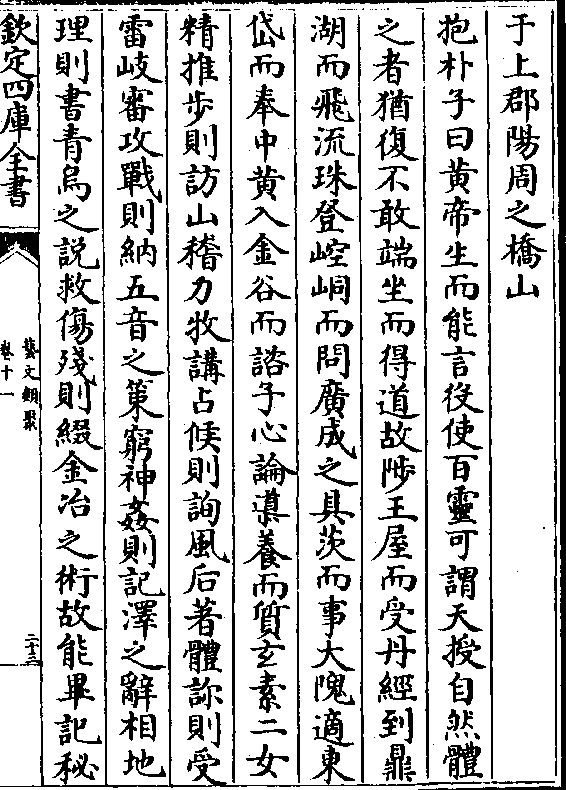 于上郡陽周之橋山
抱朴子曰黄帝生而能言役使百靈可謂天授自然體
之者猶復不敢端坐而得道故陟王屋而受丹經到鼎
湖而飛流珠登崆峒而問廣成之具茨而事大隗適東
岱而奉中黄入金谷而諮子心論導養而質玄素二女
精推步則訪山稽力牧講占候則詢風后著體診則受
雷岐審攻戰則納五音之策窮神姦則記澤之辭相地
理則書青烏之説救傷殘則綴金冶之術故能畢記秘
欽定四庫全書
藝文類聚
卷十一
二十三